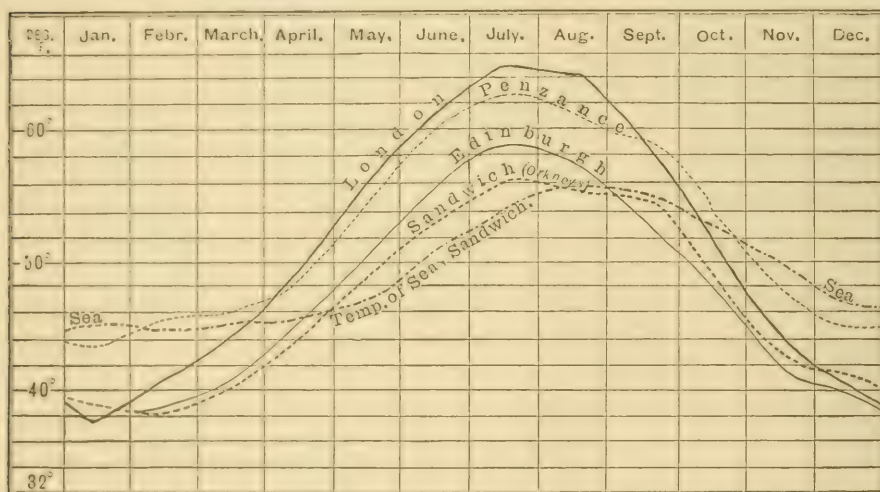 DEG. F. Jan. Febr. March. April. May. June. July. Aug. Sept. Oct. Nov. Dec.
60°
50°
40°
32°
London
Penzance
Edinburgh
Sandwich (Orkneys)
Temp. of Sea, Sandwich.
Sea
Sea